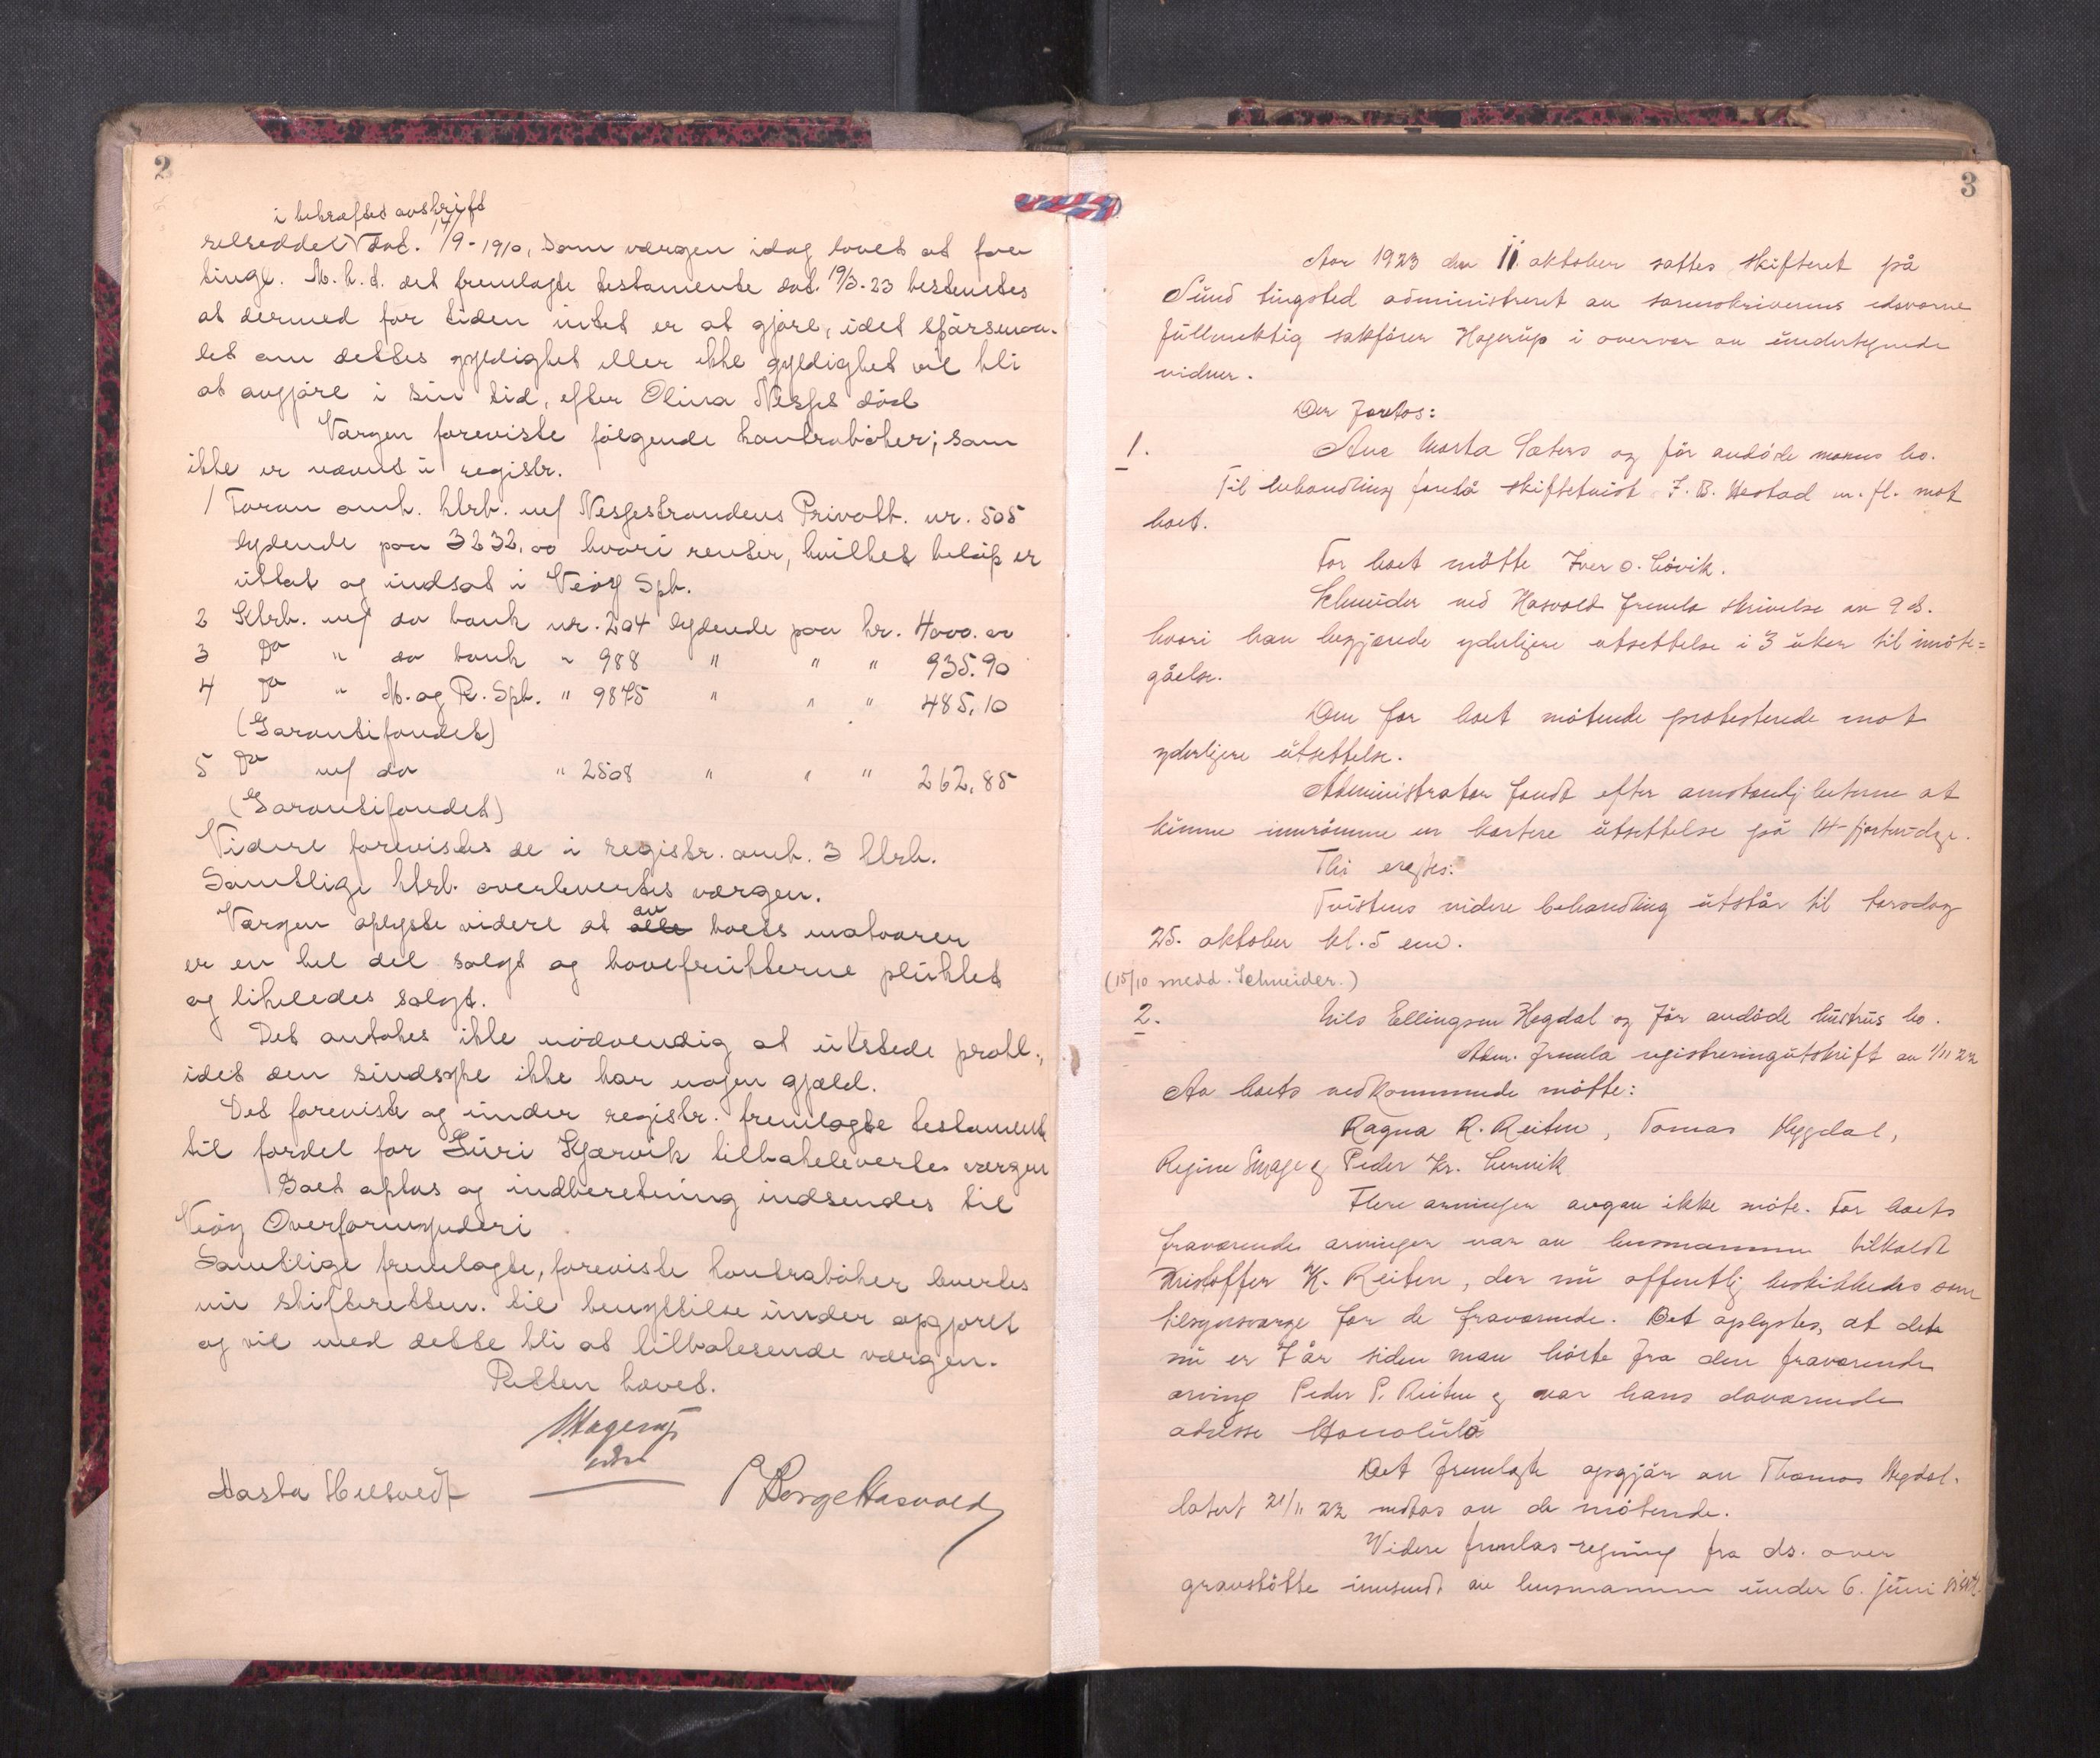 2
i bekræftet avskrift
selseddel dat. 14/9-1910, som værgen idag lovet at faa
tingl. M.h.t. det fremlagte testamente dat. 19/3-23 bestemtes
at dermed for tiden intet er at gjøre, idet spörsmaa-
let om dettes gyldighet eller ikke gyldighet vil bli
at avgjøre i sin tid, efter Olina Nesjes död
Værgen foreviste fölgende kontraböker; som
ikke er nævnt i registr.
1 Foran anh. ktrb. m/ Nesjestrandens Privatb. nr. 505
lydende paa 3232,00 hvori renter, hvilket belöp er
uttat og indsat i Veöy Spb.
2 Ktrb. m/ do bank nr. 204 lydende paa kr. 4000.00
3 Do " do bank " 988 " " " 935.90
4 Do " M. og R. Spb. " 9875 " " " 485,10
(Garantifondet)
5 Do m/ do " 2508 " " " 262,85
(Garantifondet)
Videre forevistes de i registr. anh. 3 ktrb.
Samtlige ktrb. overlevertes værgen.
Værgen oplyste videre at alle av boets matvarer
er en hel del solgt og havefrukterne plukket
og likeledes solgt.
Det antokes ikke nödvendig at utstede prokl.,
idet den sindsyke ikke har nogen gjæld.
Det foreviste og under registr. fremlagte testamente
til fordel for Guri Hjærvik tilbakeleverte værgen
Boet optas og indberetning indsendes til
Veöy Overformynderi
Samtlige fremlagte, foreviste kontraböker levertes
nu skifteretten til benyttelse under opgjöret
og vil med dette bli at tilbakesende værgen.
Retten hævet.
Hagerup
edsv
Aasta Hustvedt
P Borge Hasvold
3
Aar 1923 den 11. oktober sattes skifteret på
Sund tingsted administreret av sorenskriverens edsvorne
fullmektig sakförer Hagerup i overvær av undertegnede
vidner.
Der foretos:
1.
Ane Marta Sæters og för avdöde manns bo.
Til behandling foretå skiftetvist J. B. Hestad m. fl. mot
boet.
For boet mötte Iver O. Lövik.
Schneider ved Hasvold fremla skrivelse av 9 ds.
hvori han begjærede yderligere utsettelse i 3 uker til imöte-
gåelse.
Den for boet mötende protesterede mot
yderligere utsettelse.
Administrator fandt efter omstendigheterne at
kunne innrömme en kortere utsettelse på 14-fjorten-dage.
Thi eragtes:
Tvistens videre behandling utstår til torsdag
25. oktober kl. 5 em.
(15/10 medd. Schneider.)
2.
Nils Ellingsen Hegdal og för avdöde hustrus bo.
Adm. fremla registreringsutskrift av 1/11 22
Av boets vedkommende mötte:
Ragna R. Reiten, Tomas Hegdal,
Regine og Peder Kr. Lervik
Flere arvinger avgav ikke möte. For boets
fraværende arvinger var av husmannen tilkaldt
Kristoffer K. Reiten, der nu offentlig beskikkedes som
tilsynsværge for de fraværende. Det oplystes, at det
nu er 7 år siden man hörte fra den fraværende
arving Peder P. Reiten og var hans daværende
adresse Honolulu
Det fremlagte opgjör av Thomas Hegdal
datert 21/11 22 vedtas av de mötende.
Videre fremlas regning fra ds. over
gravstötte innsendt av husmannen under 6. juni sistl.